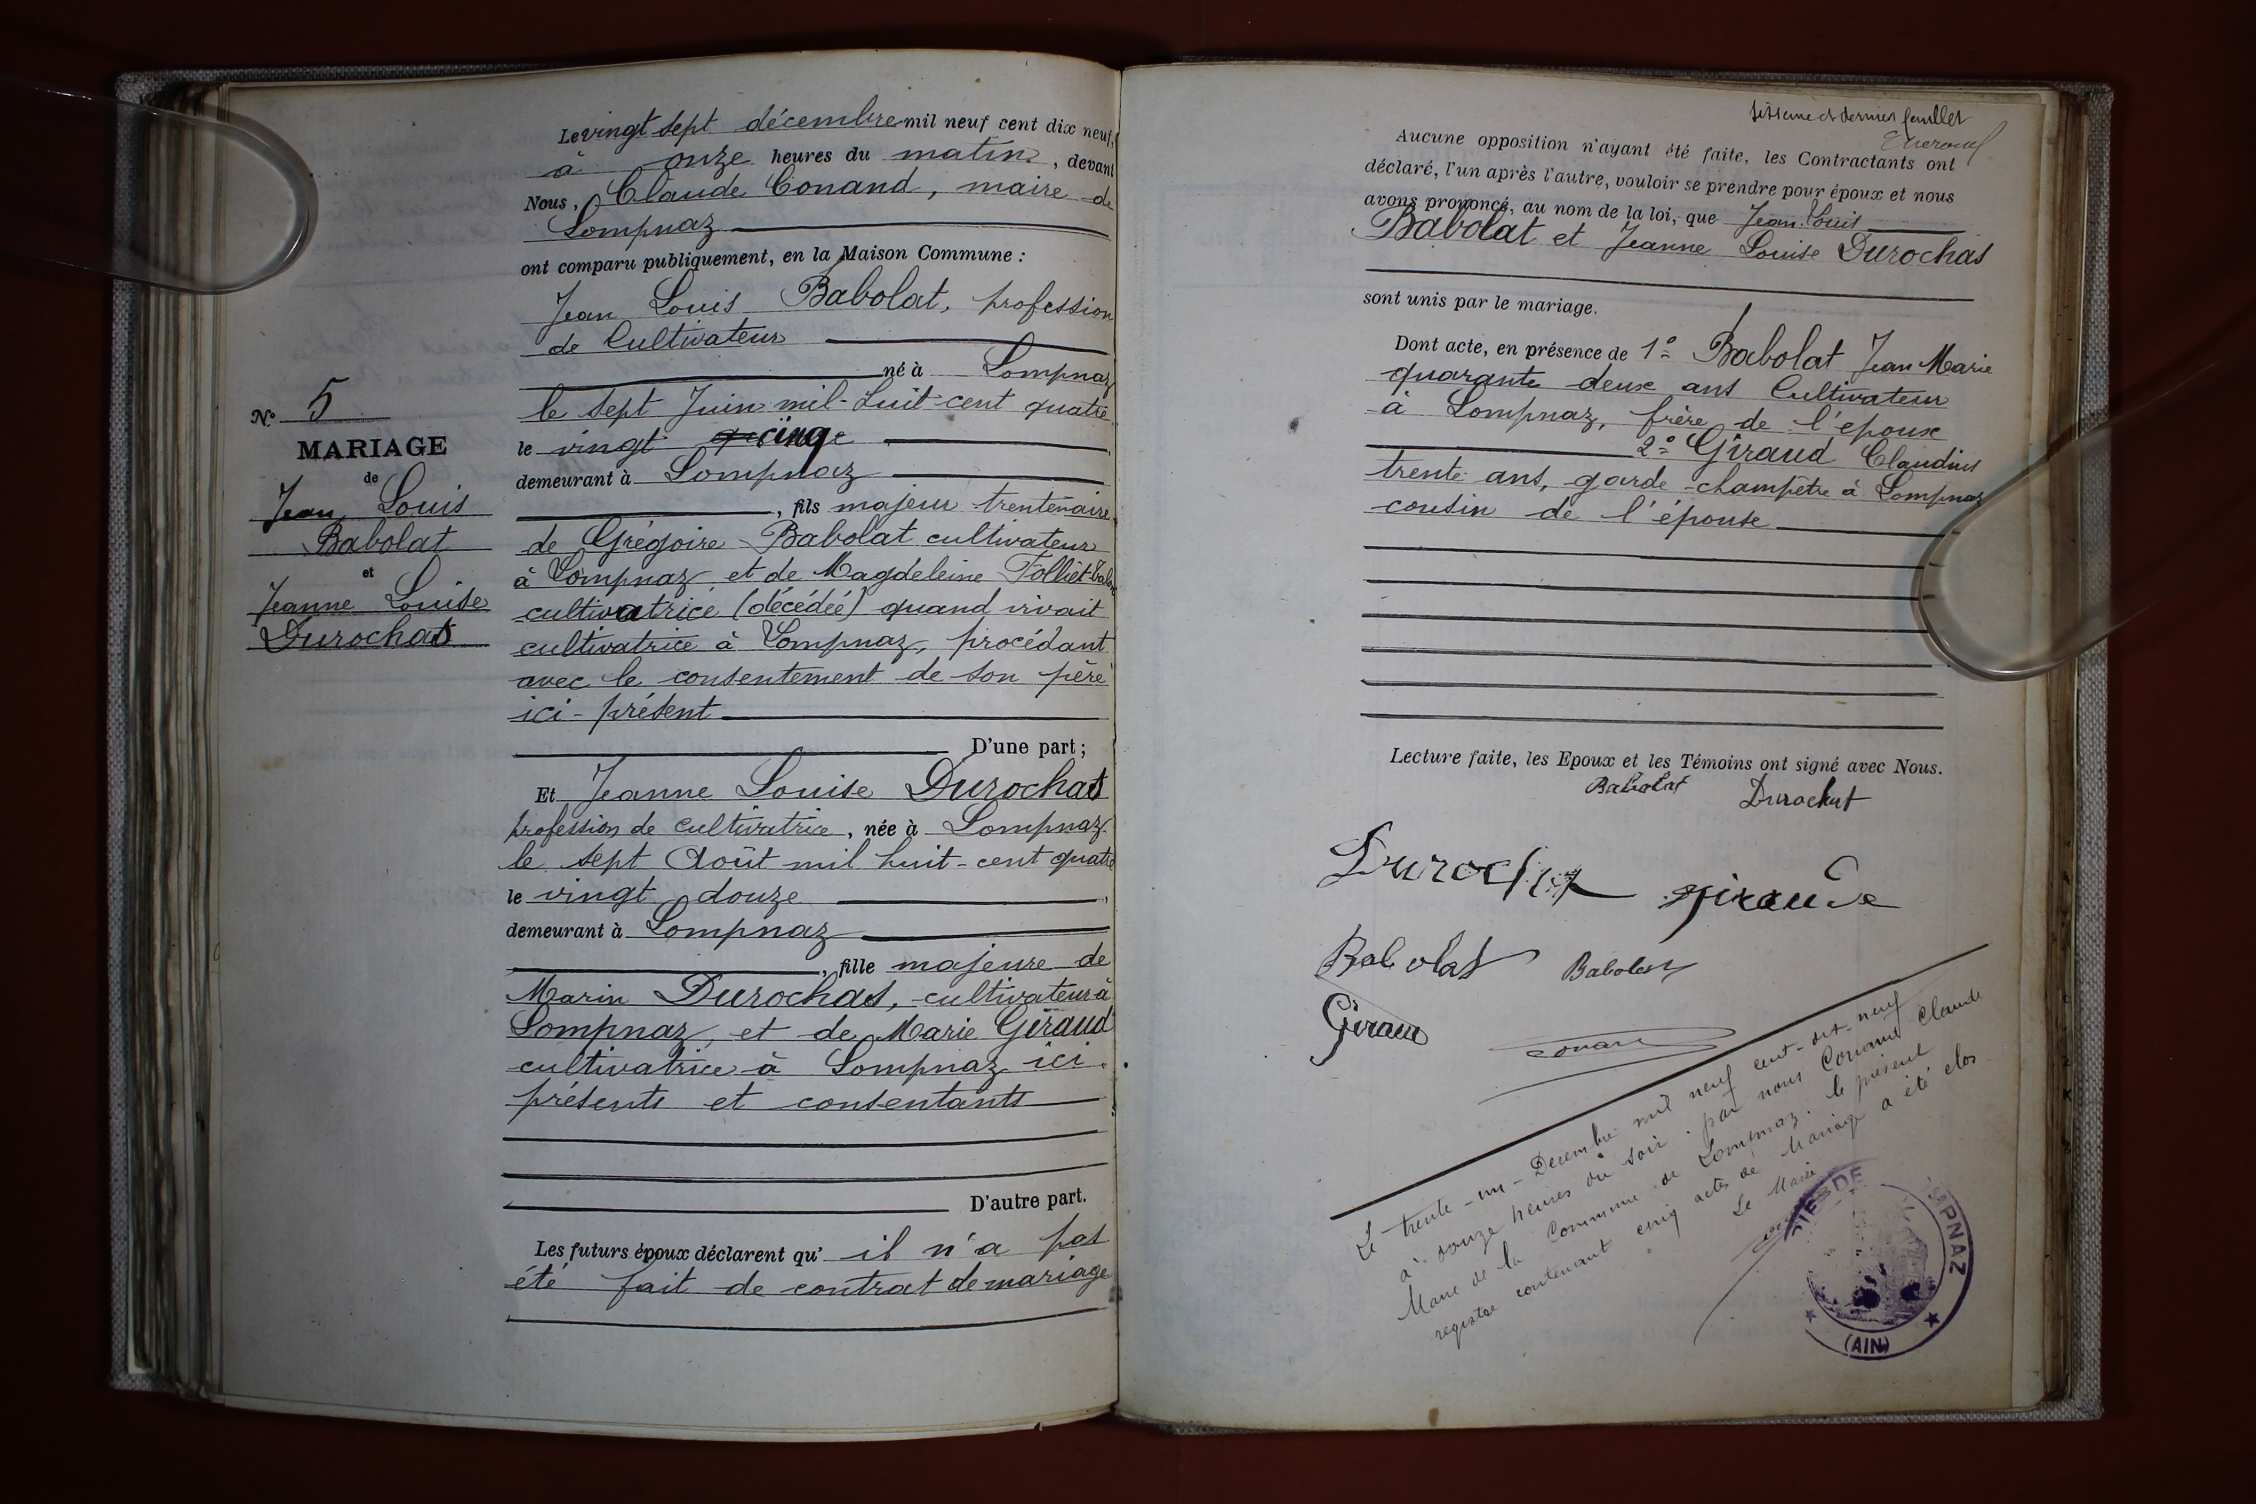 N° 5
MARIAGE
de
Jean Louis
Babolat
et
Jeanne Louise
Durochat
Le vingt sept décembre mil neuf cent dix neuf,
à onze heures du matin, devant
Nous, Claude Conand, maire de
Lompnaz
ont comparu publiquement, en la Maison Commune :
Jean Louis Babolat, profession
de Cultivateur
né à Lompnaz
le sept Juin mil-huit-cent quatre
le vingt cinq
demeurant à Lompnaz
, fils majeur trentenaire
de Grégoire Babolat cultivateur
à Lompnaz et de Magdeleine Folliet
cultivatrice (décédée) quand vivait
cultivatrice à Lompnaz, procédant
avec le consentement de son père
ici-présent
D'une part ;
Et Jeanne Louise Durochat
profession de cultivatrice, née à Lompnaz
le sept Août mil huit-cent quatre
le vingt douze
demeurant à Lompnaz
, fille majeure de
Marin Durochat, cultivateur à
Lompnaz, et de Marie Giraud
cultivatrice à Lompnaz ici
présents et consentants
D'autre part.
Les futurs époux déclarent qu' il n'a pas
été fait de contrat de mariage
et dernier feuillet
Aucune opposition n'ayant été faite, les Contractants ont
déclaré, l'un après l'autre, vouloir se prendre pour époux et nous
avons prononcé, au nom de la loi, que Jean Louis
Babolat et Jeanne Louise Durochat
sont unis par le mariage.
Dont acte, en présence de 1° Babolat Jean Marie
quarante deux ans Cultivateur
à Lompnaz, frère de l'époux
2° Giraud Claudius
trente ans, garde-champêtre à Lompnaz
cousin de l'épouse
Lecture faite, les Epoux et les Témoins ont signé avec Nous.
Babolat Durochat
Durochat Giraud
Babolat Babolat
Giraud
Conand
Le trente-un-Decembre mil neuf cent-dix-neuf
à douze heures du soir. par nous Conand Claude
Maire de la Commune de Lompnaz. le présent
registre contenant cinq actes de Mariage a été clos
Le Maire
(AIN)